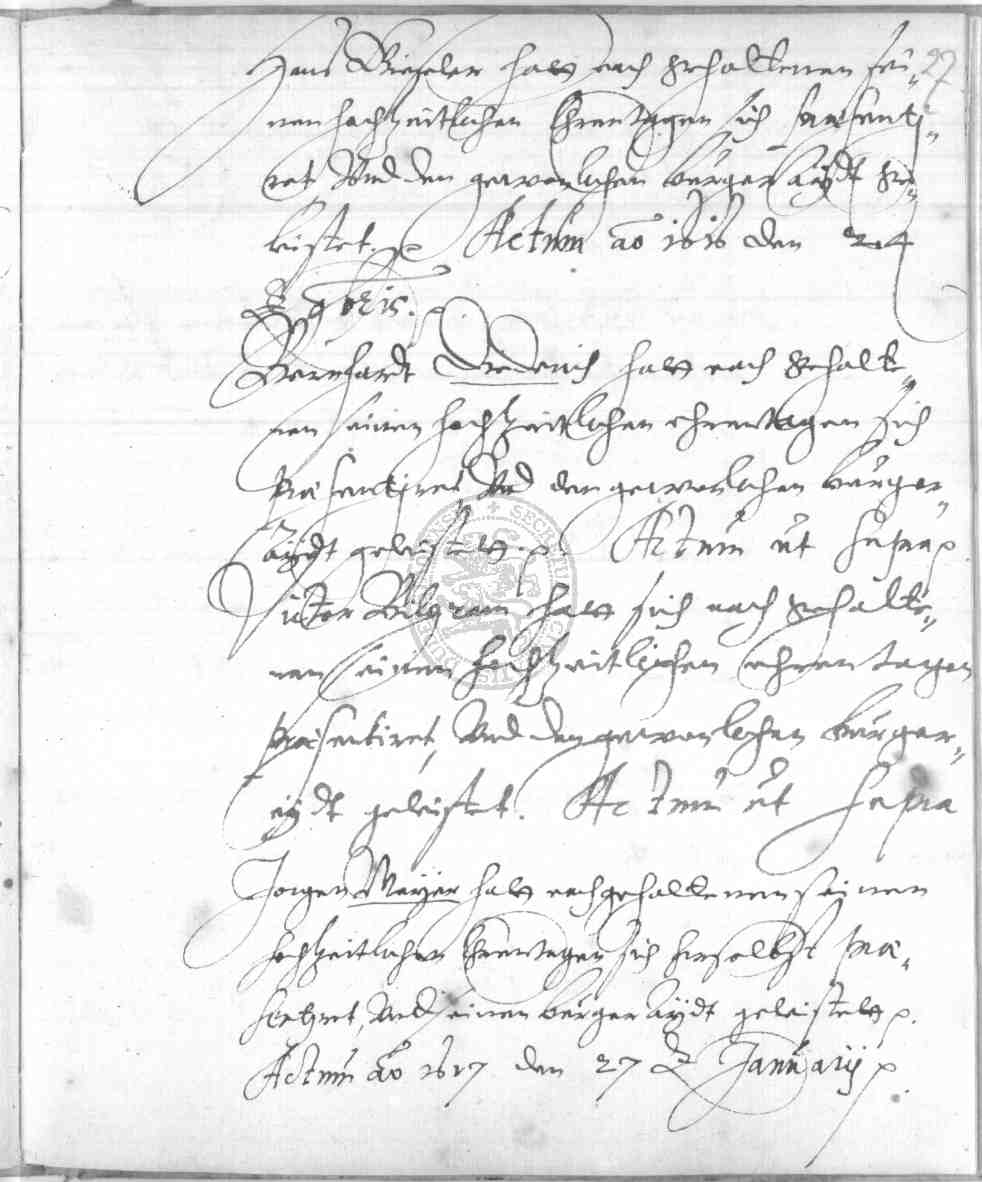 Hans Gieseler hatt nach gehaltenen sei„ 27
nen hochzeitlichen Ehrentagen sich præsenti„
ret Und den gewonlichen burger aÿdt ge„
leistet. Actum ao 1616 den 24
9bris.
Bernhardt Diederich hatt nach gehalte„
nen seinen hochzeitlichen ehrentagen sich
præsentiret Und den gewonlichen burger„
aÿdt geleistett. Actum ut supra
Victor Bilgram hatt sich nach gehalte„
nen seinen hochzeitlichen ehrentagen
præsentiret, Und den gewonlichen burger„
eÿdt geleistet. Actum ut supra
Jorgen Meÿer hatt nach gehaltenen seinen
hochzeitlichen Ehrentagen sich hieselbst præ„
sentiret, Und seinen burger aÿdt geleistett.
Actum ao 1617 den 27 Januarij